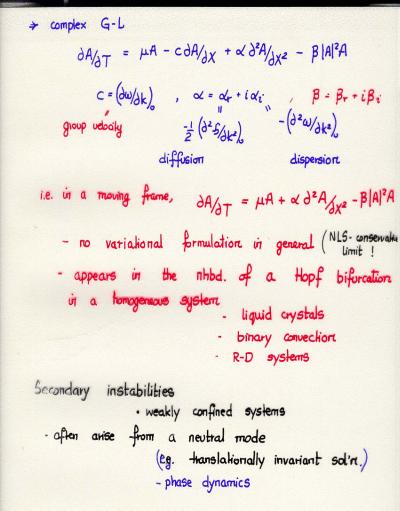 → complex G-L
∂A/∂T = μA - c∂A/∂X + α∂²A/∂X² - β|A|²A
c = (∂ω/∂k)₀ , α = αᵣ + iαᵢ , β = βᵣ + iβᵢ
group velocity
-½(∂²f/∂k²)₀ -(∂²ω/∂k²)₀
diffusion dispersion
i.e. in a moving frame, ∂A/∂T = μA + α∂²A/∂X² - β|A|²A
- no variational formulation in general (NLS-conservative
limit !
- appears in the nhbd. of a Hopf bifurcation
in a homogeneous system
- liquid crystals
- binary convection
- R-D systems
Secondary instabilities
• weakly confined systems
- often arise from a neutral mode
(eg. translationally invariant sol'n.)
- phase dynamics